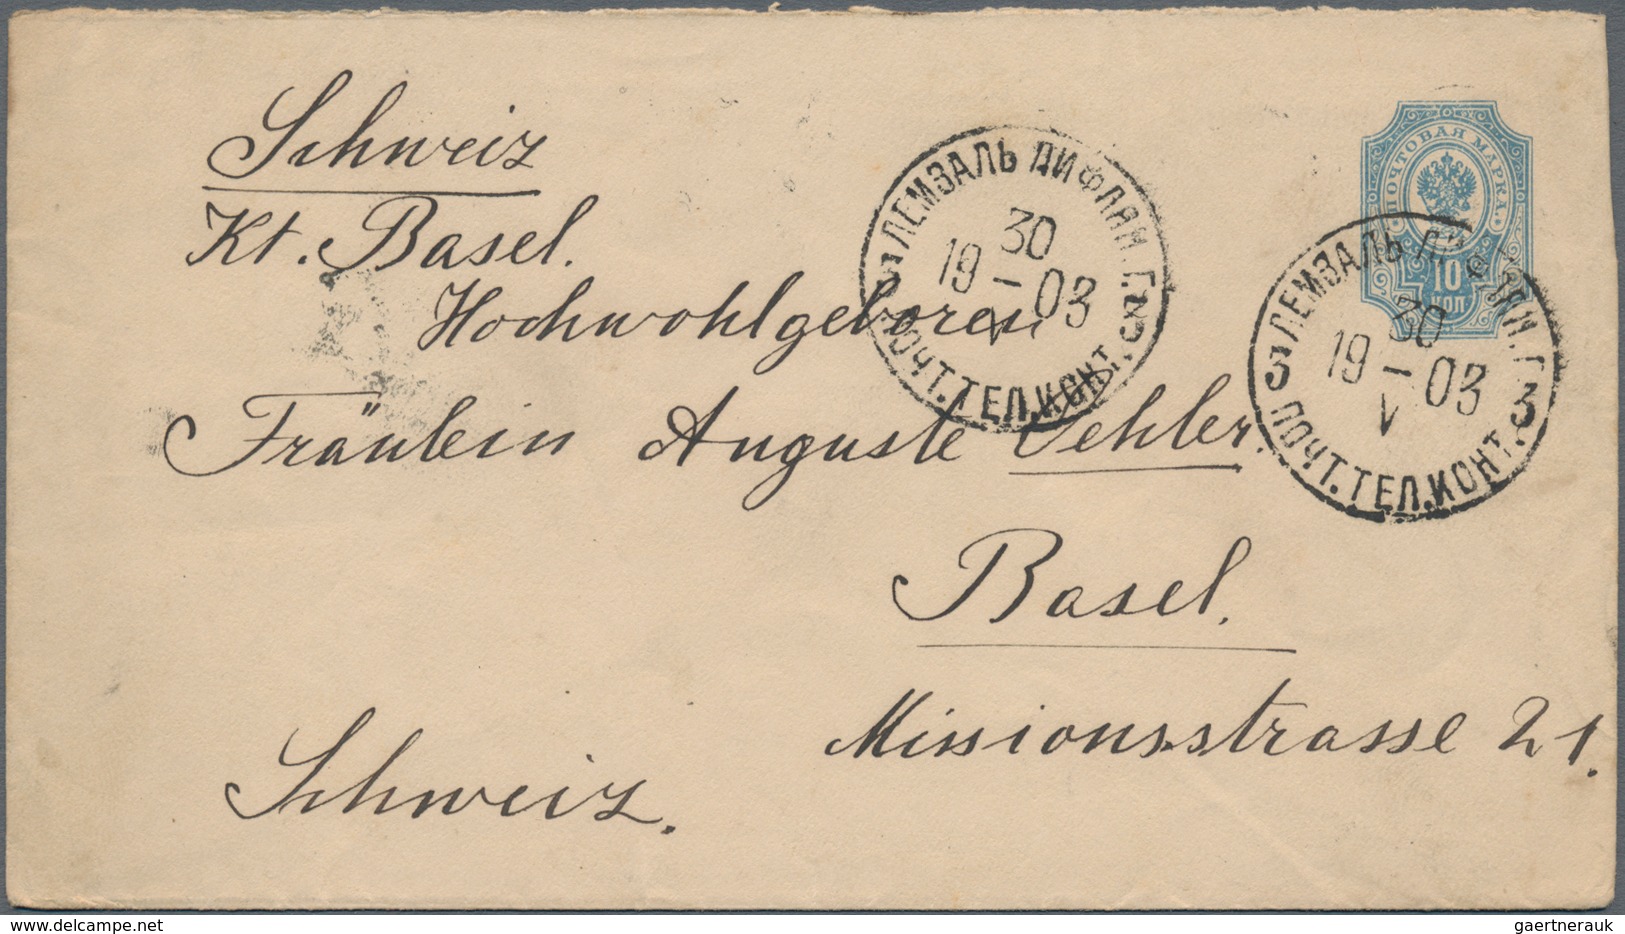 Schweiz
Kt. Basel.
Hochwohlgeboren
Fräulein Auguste Oehler.
Basel.
Missionsstrasse 21.
Schweiz.
ПОЧТОВАЯ МАРКА.
10
КОП.
ЛЕМЗАЛЬ ЛИФЛЯН. Г.
30
19-03
V
3 ПОЧТ. ТЕЛ. КОНТ. 3
ЛЕМЗАЛЬ ЛИФЛЯН. Г.
30
19-03
V
3 ПОЧТ. ТЕЛ. КОНТ. 3
www.delcampe.net
gaertnerauk